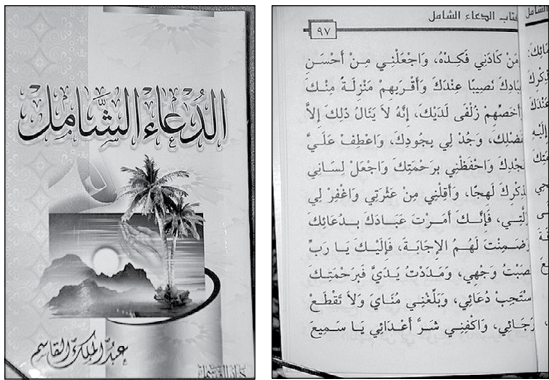 الدُّعَاءُ الشَّامِل
عبد الملك القاسم
كتاب الدعاء الشامل
٩٧
مَنْ كَادَنِي فَكِدْهُ، وَاجْعَلْنِي مِنْ أَحْسَنِ
عِبَادِكَ نَصِيبًا عِنْدَكَ وَأَقْرَبِهِم مَنْزِلَةً مِنْكَ
وَأَخَصِّهِم زُلْفَى لَدَيْكَ، إِنَّهُ لَا يَنَالُ ذَلِكَ إِلَّا
بِفَضْلِكَ، وَجُدْ لِي بِجُودِكَ، وَاعْطِفْ عَلَيَّ
بِمَجْدِكَ وَاحْفَظْنِي بِرَحْمَتِكَ وَاجْعَلْ لِسَانِي
بِذِكْرِكَ لَهِجًا، وَأَقِلْنِي مِنْ عَثْرَتِي وَاغْفِرْ لِي
زَلَّتِي، فَإِنَّكَ أَمَرْتَ عِبَادَكَ بِدُعَائِكَ
وَضَمِنْتَ لَهُمُ الإِجَابَةَ، فَإِلَيْكَ يَا رَبِّ
نَصَبْتُ وَجْهِي، وَمَدَدْتُ يَدَيَّ فَبِرَحْمَتِكَ
اسْتَجِبْ دُعَائِي، وَبَلِّغْنِي مُنَايَ وَلَا تَقْطَعْ
رَجَائِي، وَاكْفِنِي شَرَّ أَعْدَائِي يَا سَمِيعَ